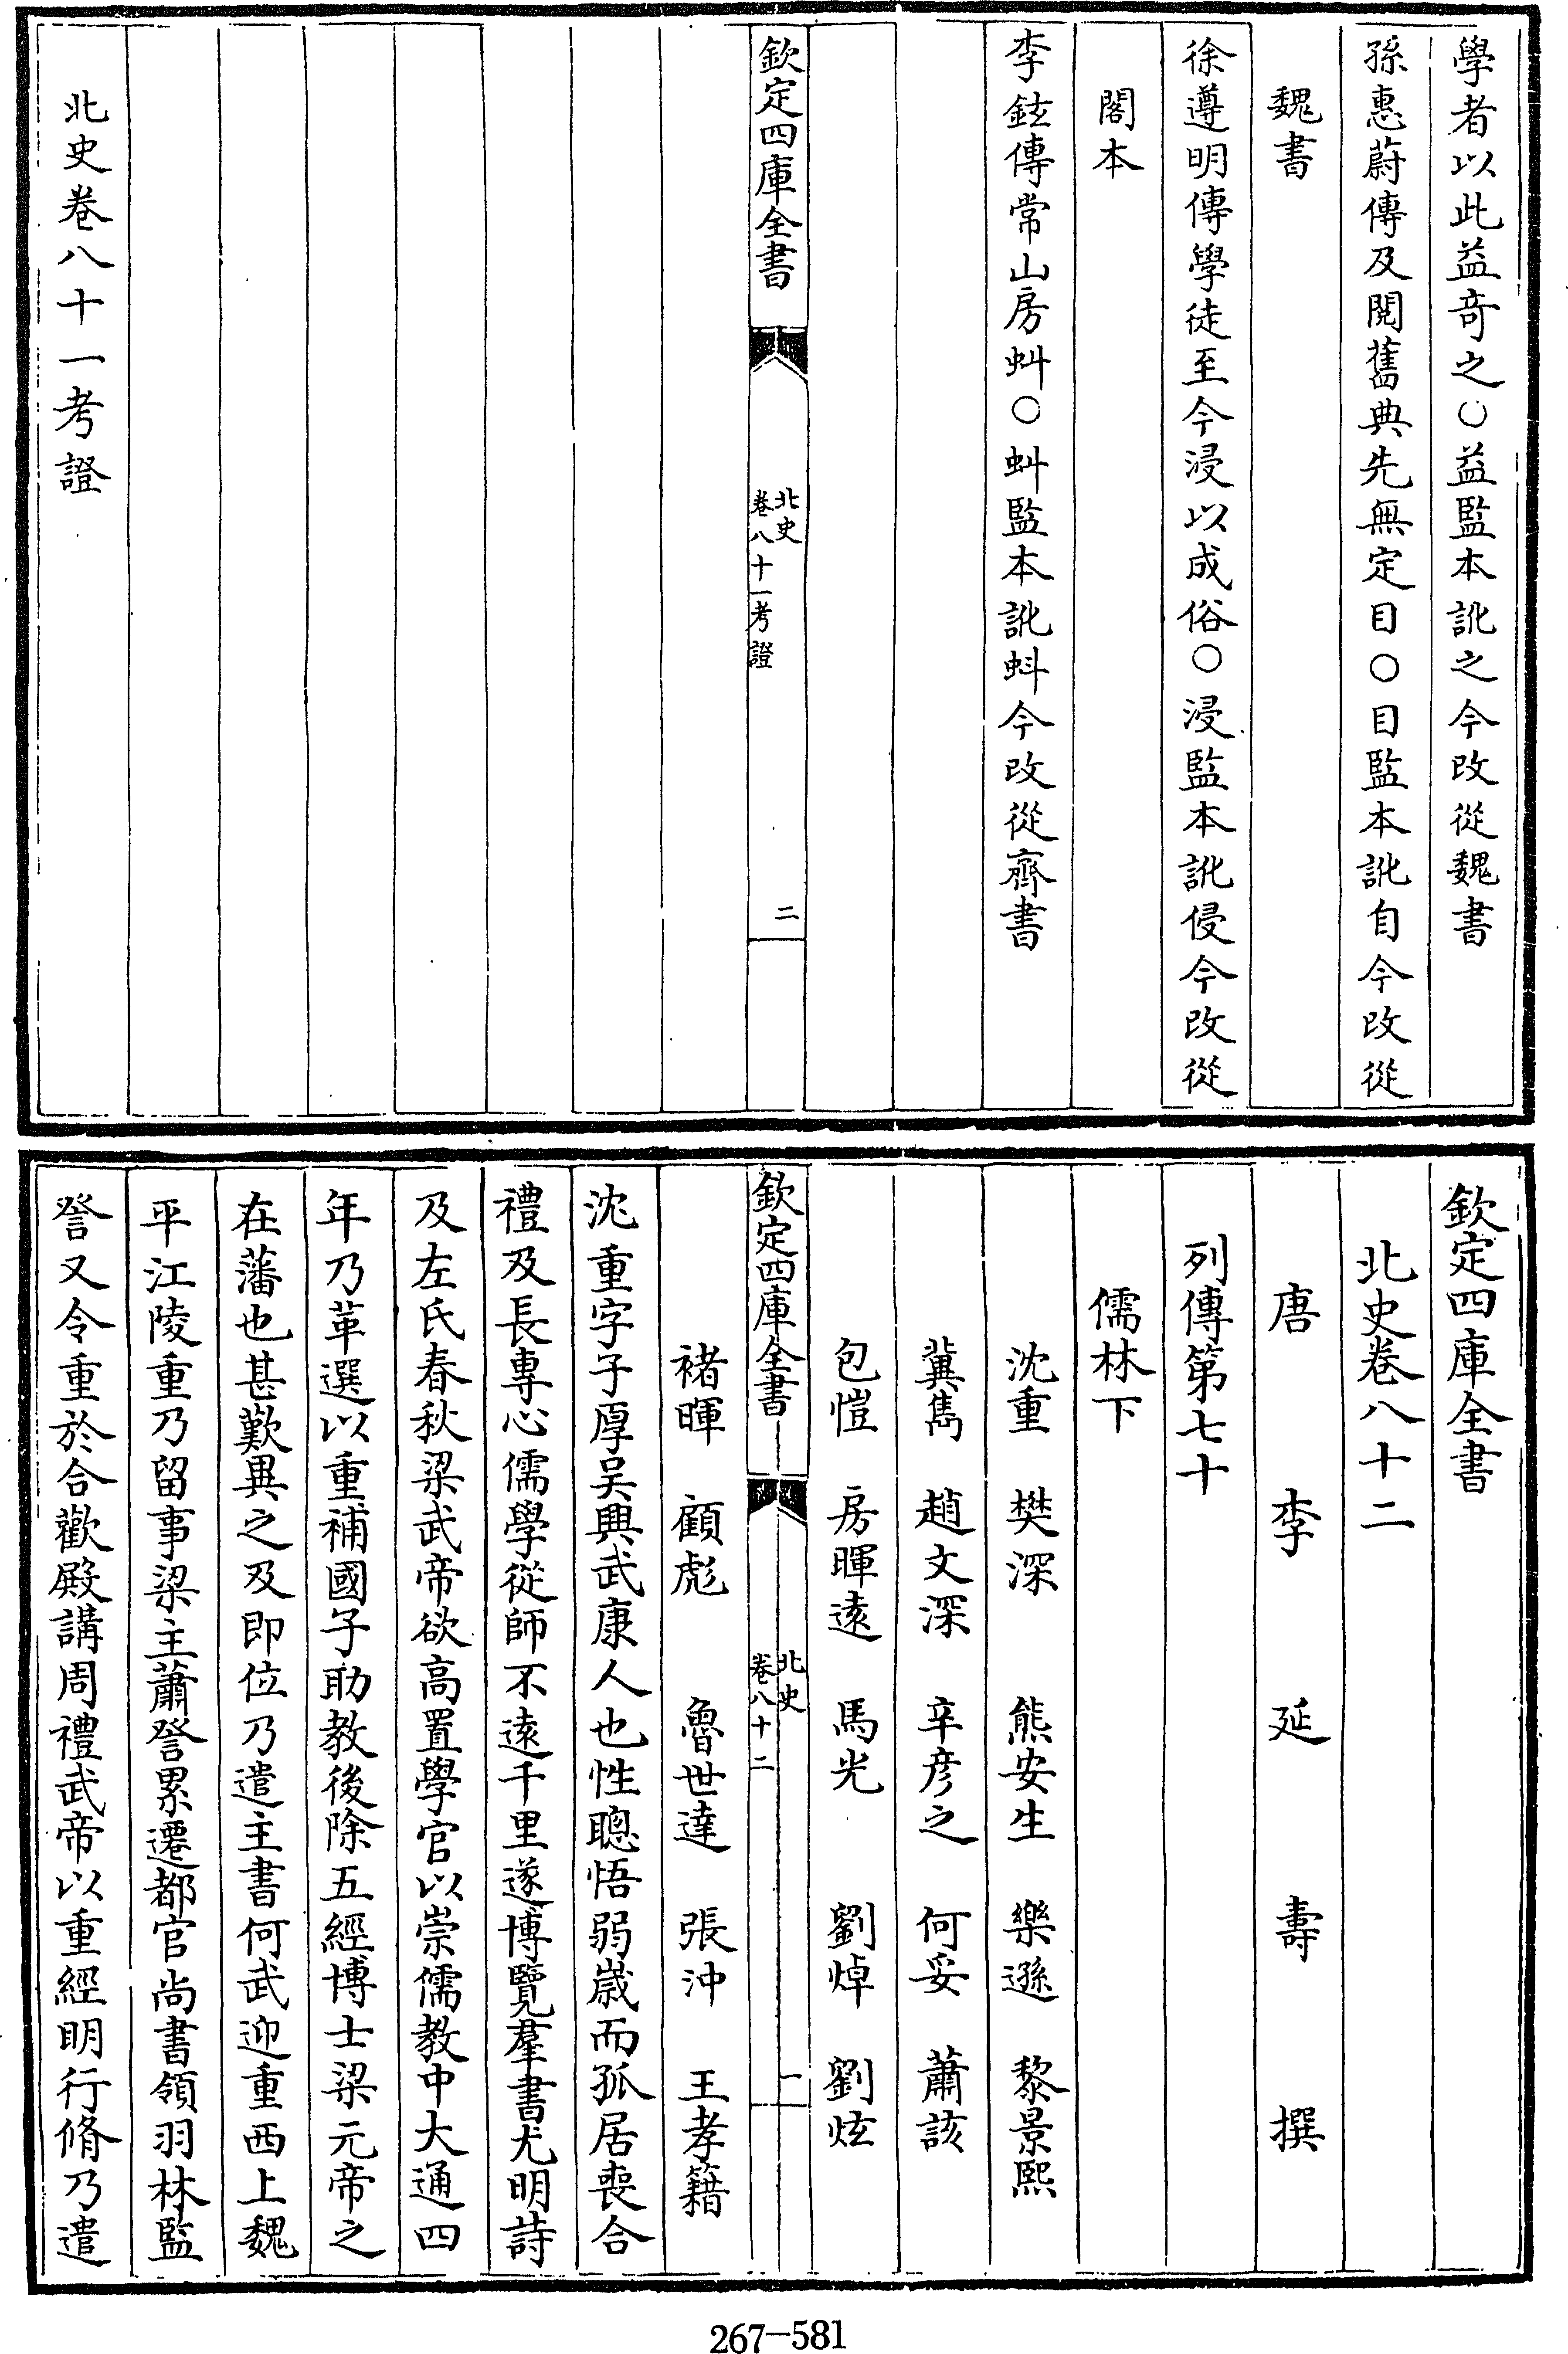 學者以此益奇之○益監本訛之今改從魏書
孫惠蔚傳及閱舊典先無定目○目監本訛自今改從
魏書
徐遵明傳學徒至今浸以成俗○浸監本訛侵今改從
閣本
李鉉傳常山房虯○虯監本訛蚪今改從齊書
欽定四庫全書
北史
卷八十一考證
二
北史卷八十一考證
欽定四庫全書
北史卷八十二
唐 李 延 壽 撰
列傳第七十
儒林下
沈重 樊深 熊安生 樂遜 黎景熙
冀儁 趙文深 辛彦之 何妥 蕭該
包愷 房暉遠 馬光 劉焯 劉炫
欽定四庫全書
北史
卷八十二
一
褚暉 顧彪 魯世達 張沖 王孝籍
沈重字子厚吳興武康人也性聰悟弱歲而孤居喪合
禮及長專心儒學從師不遠千里遂博覽羣書尤明詩
及左氏春秋梁武帝欲高置學官以崇儒教中大通四
年乃革選以重補國子助教後除五經博士梁元帝之
在藩也甚歎異之及即位乃遣主書何武迎重西上魏
平江陵重乃留事梁主蕭詧累遷都官尚書領羽林監
詧又令重於合歡殿講周禮武帝以重經明行脩乃遣
267-581